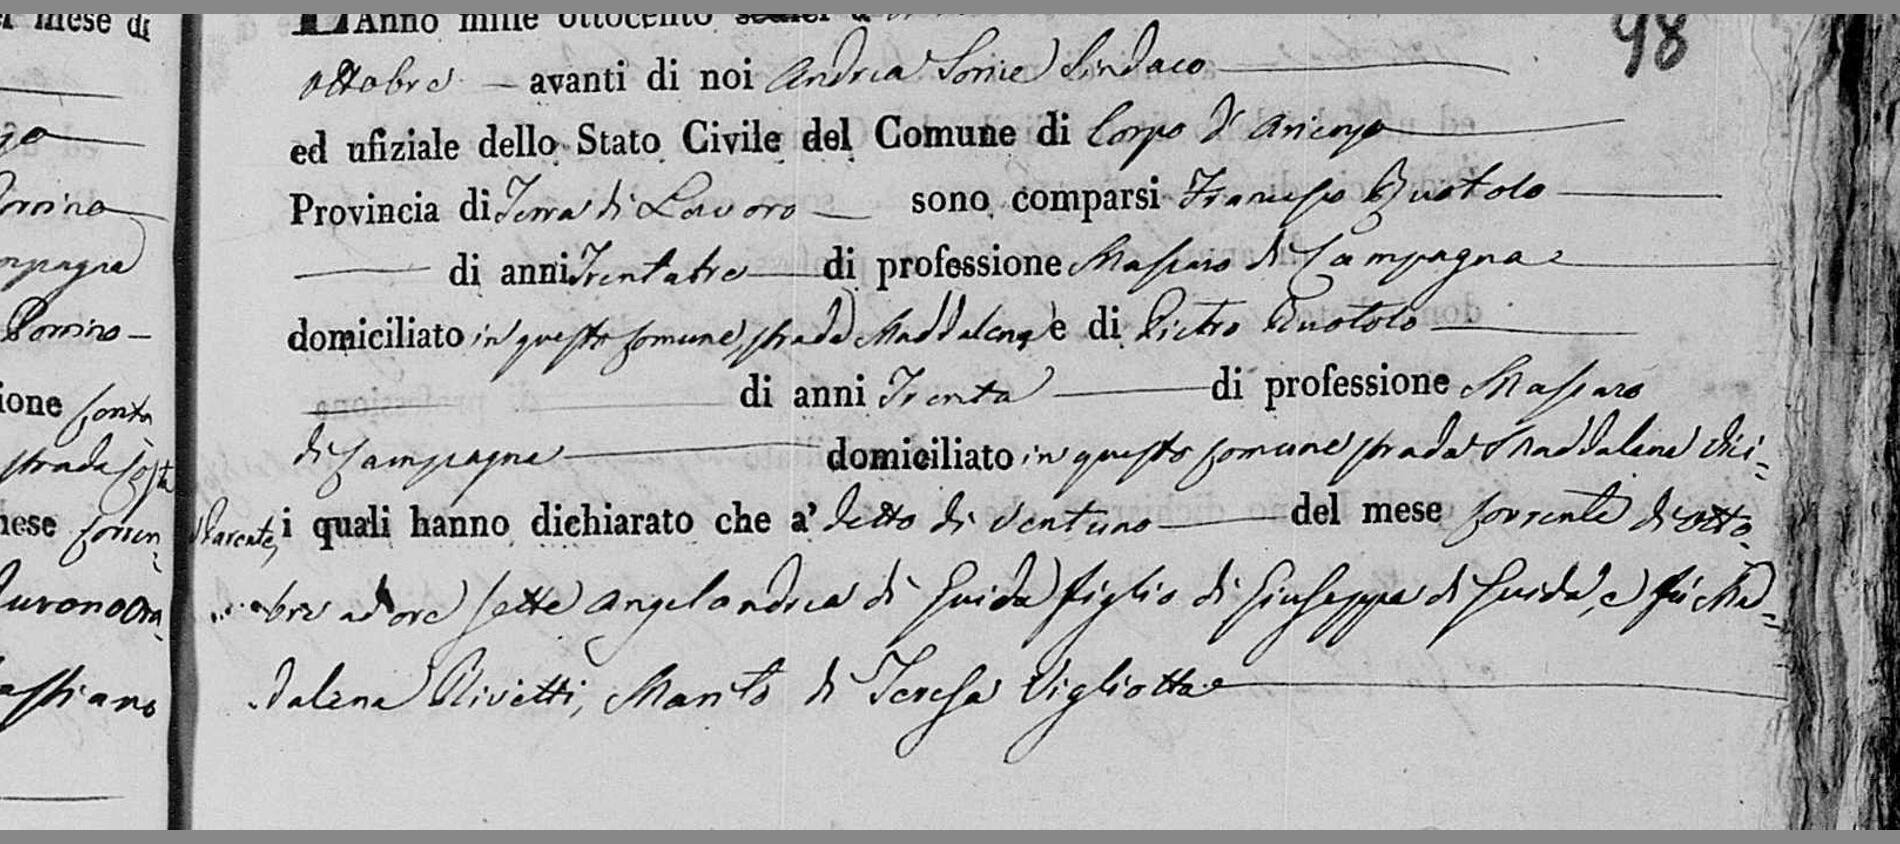 98
L'Anno mille ottocento sedici a
ottobre — avanti di noi Andrea Sorice Sindaco
ed ufiziale dello Stato Civile del Comune di Corpo d'Arienzo
Provincia di Terra di Lavoro — sono comparsi Francesco Ruotolo
di anni Trentatre di professione Massaro di Campagna
domiciliato in questo comune strada Maddalena e di Pietro Ruotolo
di anni Trenta di professione Massaro
di Campagna domiciliato in questo comune strada Maddalena dici=
i quali hanno dichiarato che a' detto dì Ventuno del mese corrente di otto=
bre ad ore sette Angelandrea di Guida figlio di Giuseppe di Guida, e fù Mad=
dalena Rivetti, Marito di Teresa Vigliotta
el mese di
ompagna
Porrino —
ione
strada
mese corren=
assiano